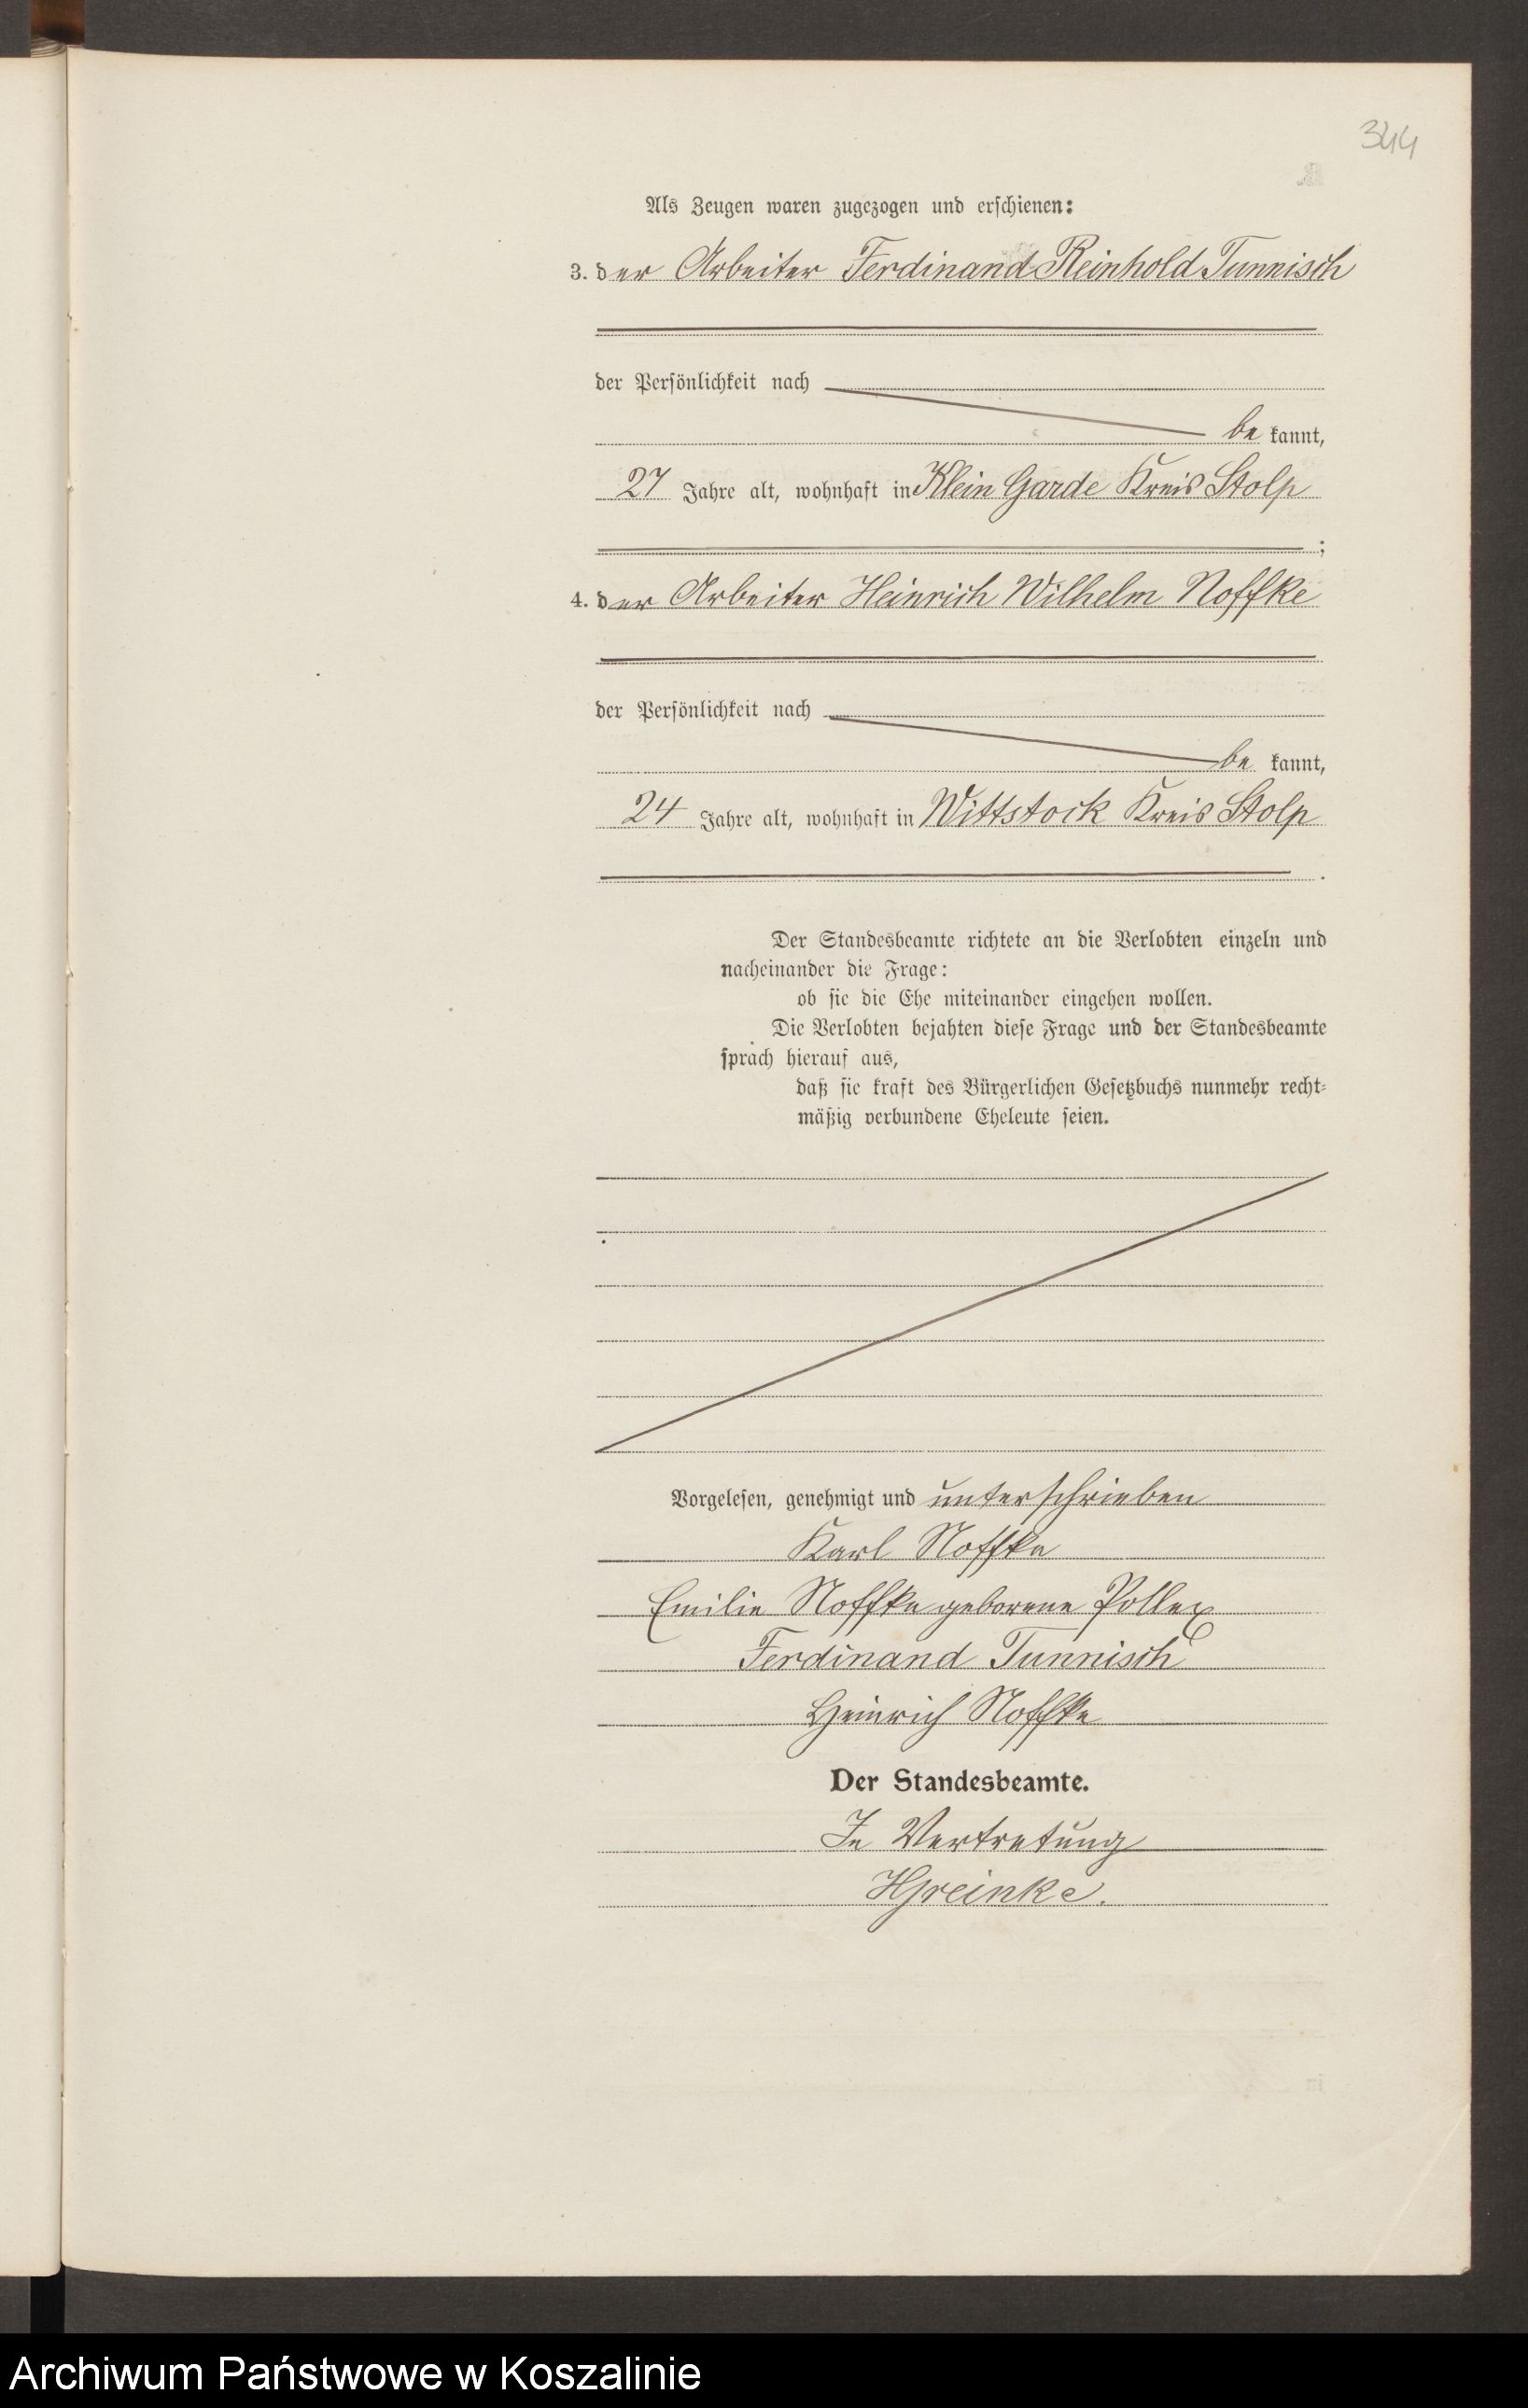 344
Als Zeugen waren zugezogen und erschienen:
3. der Arbeiter Ferdinand Reinhold Tunnisch
der Persönlichkeit nach
be kannt,
27 Jahre alt, wohnhaft in Klein Garde Kreis Stolp
;
4. der Arbeiter Heinrich Wilhelm Noffke
der Persönlichkeit nach
be kannt,
24 Jahre alt, wohnhaft in Wittstock Kreis Stolp
.
Der Standesbeamte richtete an die Verlobten einzeln und
nacheinander die Frage:
ob sie die Ehe miteinander eingehen wollen.
Die Verlobten bejahten diese Frage und der Standesbeamte
sprach hierauf aus,
daß sie kraft des Bürgerlichen Gesetzbuchs nunmehr recht-
mäßig verbundene Eheleute seien.
Vorgelesen, genehmigt und unterschrieben
Karl Noffke
Emilie Noffke geborene Pollex
Ferdinand Tunnisch
Heinrich Noffke
Der Standesbeamte.
In Vertretung
Archiwum Państwowe w Koszalinie